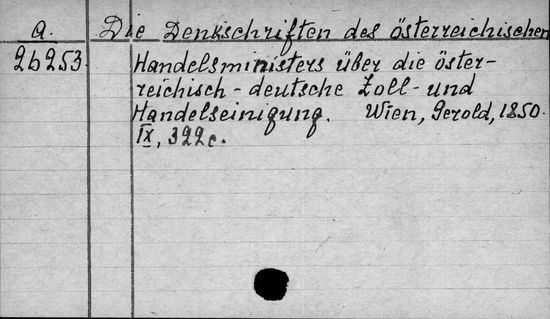 a. Die Denkschriften des österreichischen
26253. Handelsministers über die öster-
reichisch-deutsche Zoll- und
Handelseinigung. Wien, Gerold, 1850.
IX, 322c.